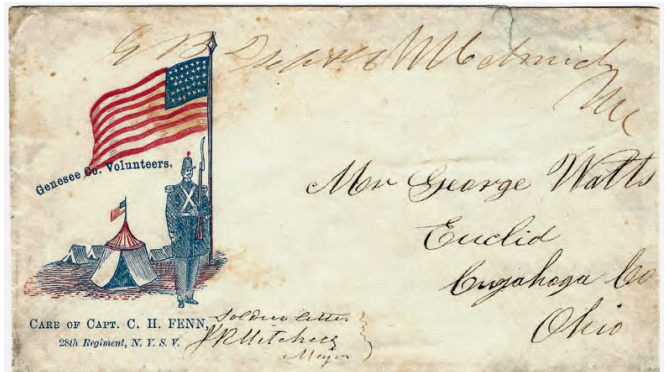 Genesee Co. Volunteers.
Mr George Watts
Euclid
Cuyahoga Co
Ohio
CARE OF CAPT. C. H. FENN,
28th Regiment, N. Y. S. V.
Soldiers letter
Major